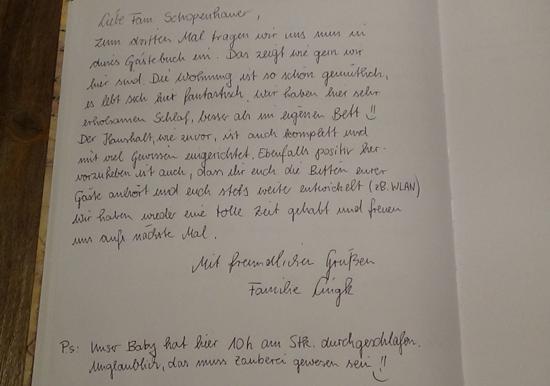 Liebe Fam. Schopenhauer,
zum dritten Mal tragen wir uns nun in
dieses Gästebuch ein. Das zeigt wie gern wir
hier sind. Die Wohnung ist so schön gemütlich,
es lebt sich hier fantastisch. Wir haben hier sehr
erholsamen Schlaf, besser als im eigenen Bett !!
Der Haushalt, wie zuvor, ist auch komplett und
mit viel Gewissen eingerichtet. Ebenfalls positiv her-
vorzuheben ist auch, dass ihr euch die Bitten eurer
Gäste anhört und euch stets weiter entwickelt (zB. WLAN)
Wir haben wieder eine tolle Zeit gehabt und freuen
uns aufs nächste Mal.
Mit freundlichen Grüßen
Familie
Ps: Unser Baby hat hier 10h am Stk. durchgeschlafen.
Unglaublich, das muss Zauberei gewesen sein !!